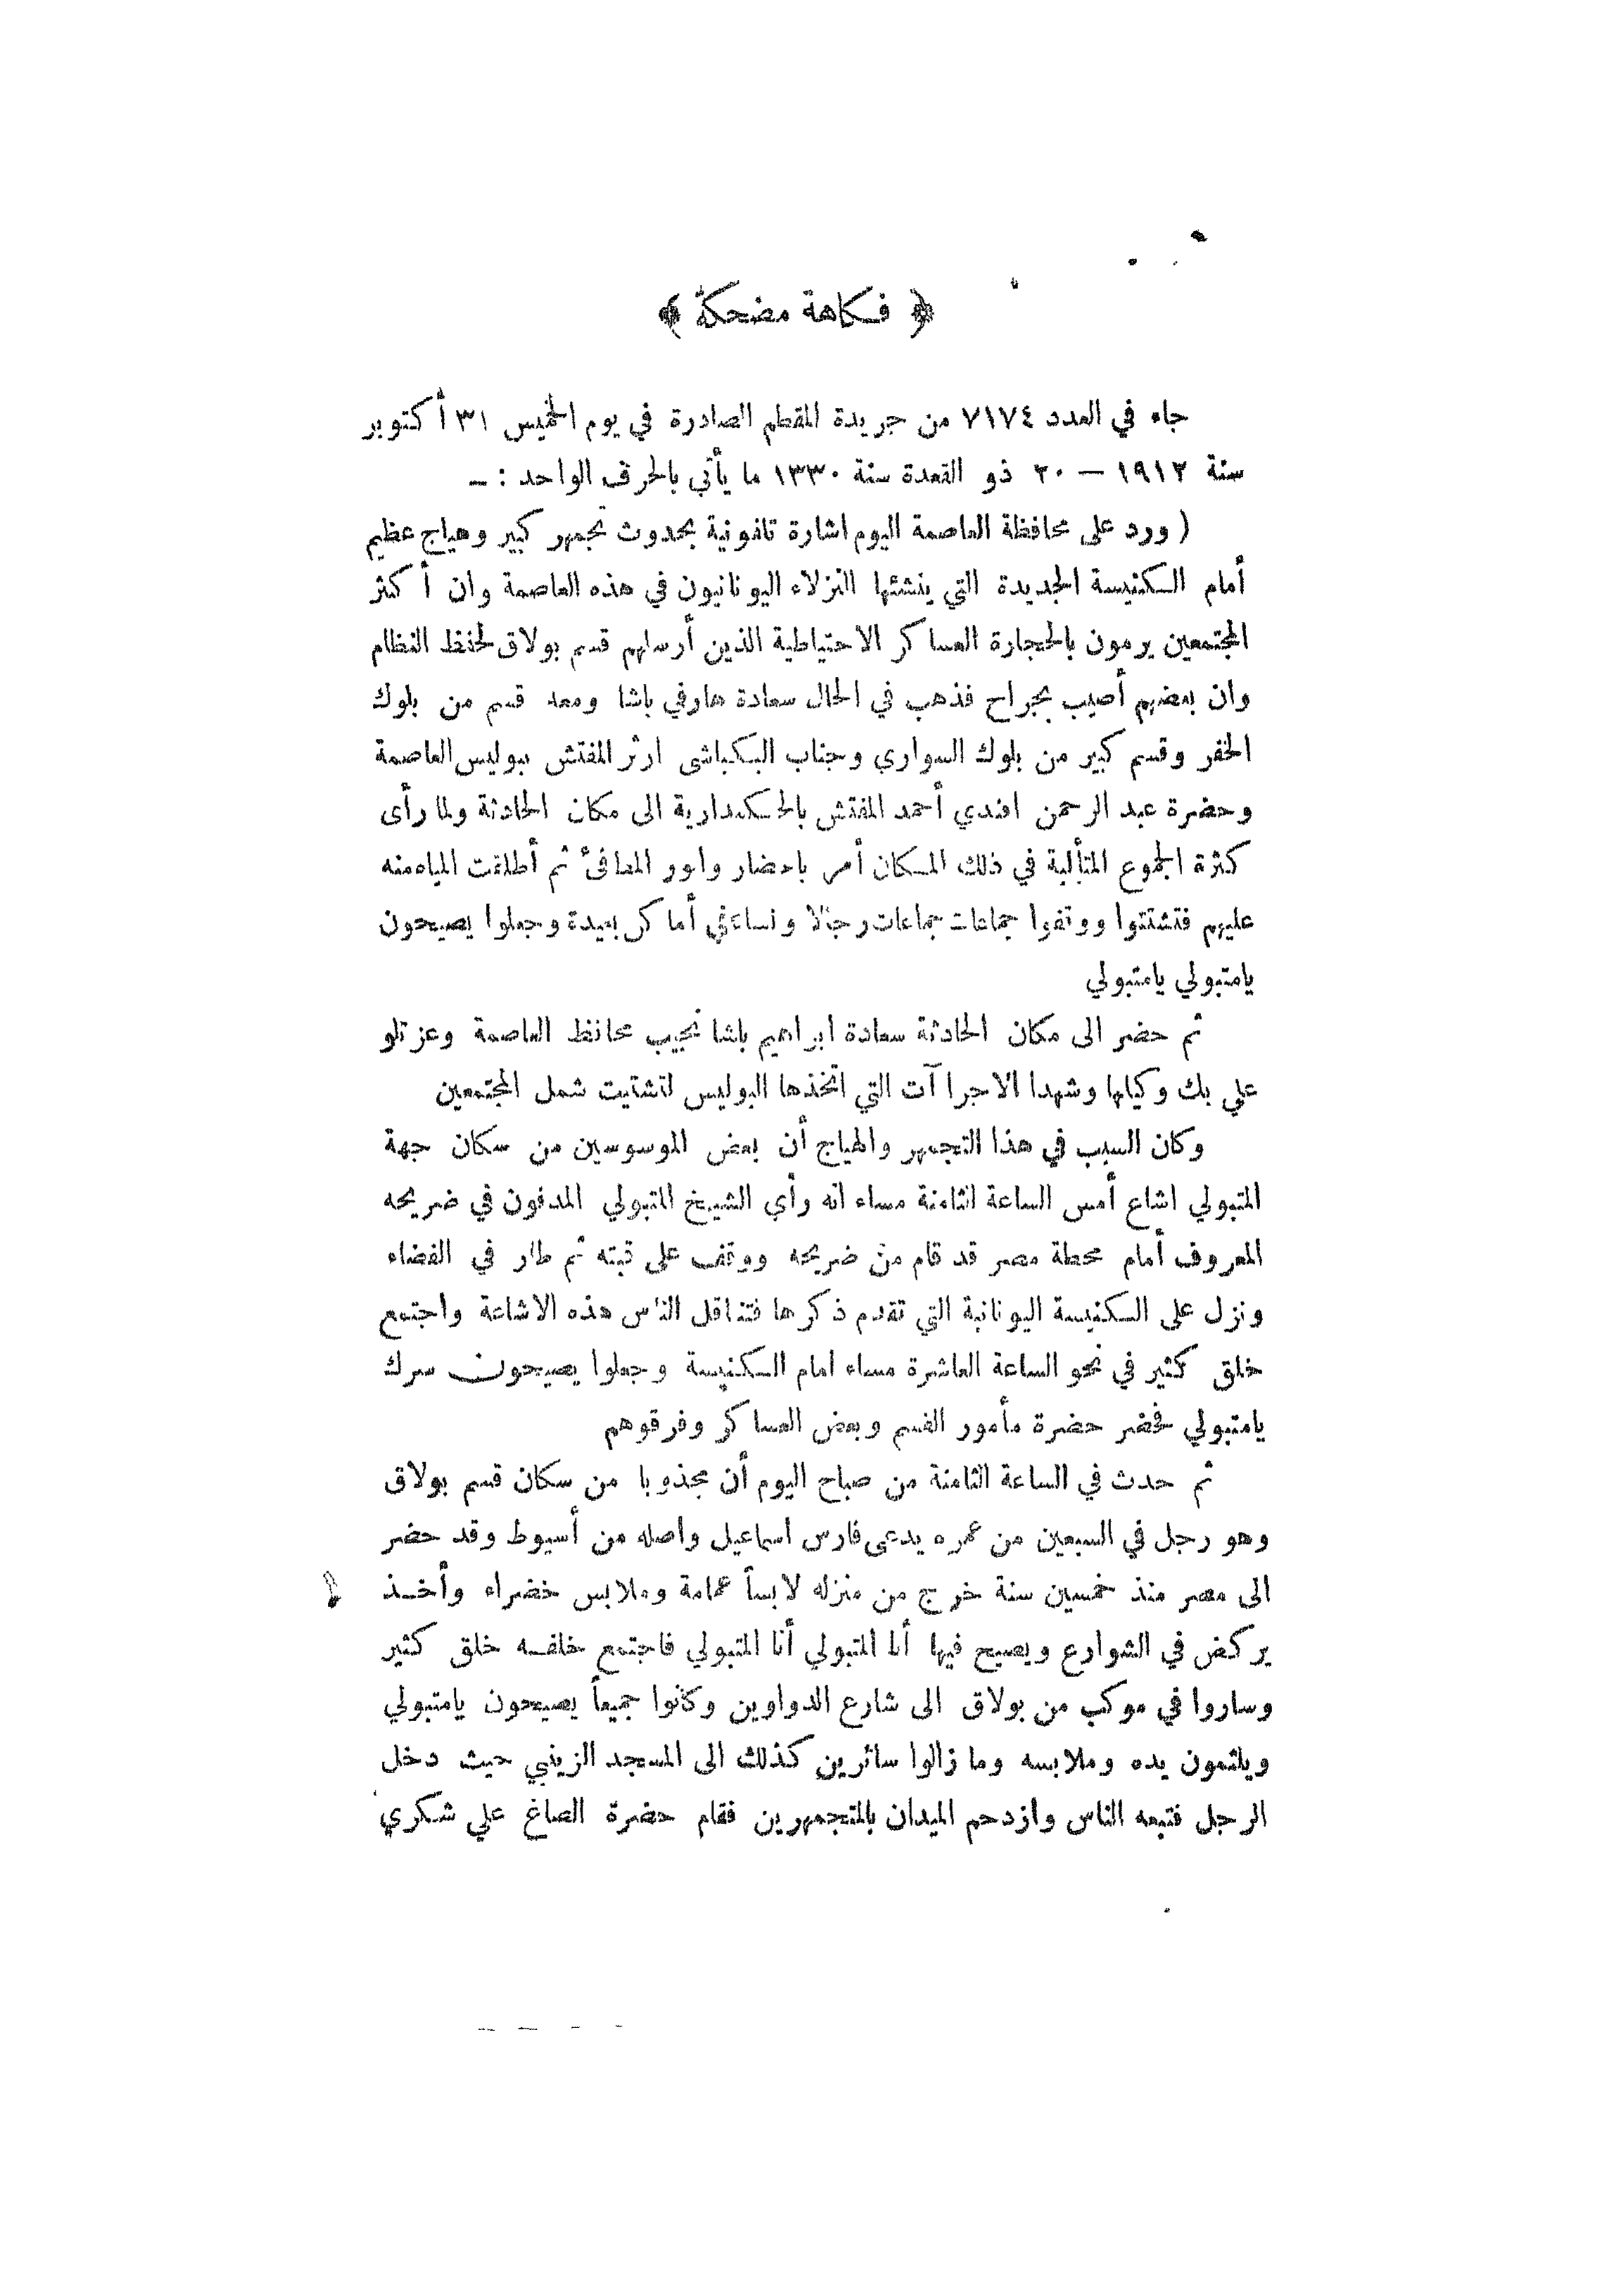 ﴿ فكاهة مضحكة ﴾
جاء في العدد ٧١٧٤ من جريدة المقطم الصادرة في يوم الخميس ٣١ أكتوبر
سنة ١٩١٢ — ٢٠ ذو القعدة سنة ١٣٣٠ ما يأتي بالحرف الواحد : —
( ورد على محافظة العاصمة اليوم اشارة تلفونية بحدوث تجمهر كبير وهياج عظيم
أمام الكنيسة الجديدة التي ينشئها النزلاء اليونانيون في هذه العاصمة وان أكثر
المجتمعين يرمون بالحجارة العساكر الاحتياطية الذين أرسلهم قسم بولاق لحفظ النظام
وان بعضهم أصيب بجراح فذهب في الحال سعادة هارفي باشا ومعه قسم من بلوك
الخفر وقسم كبير من بلوك السواري وجناب البكباشى ارثر المفتش ببوليس العاصمة
وحضرة عبد الرحمن افندي أحمد المفتش بالحكمدارية الى مكان الحادثة ولما رأى
كثرة الجموع المتألبة في ذلك المكان أمر باحضار وابور المطافئ ثم أطلقت المياه منه
عليهم فتشتتوا ووقفوا جماعات جماعات رجالا ونساء في أماكن بعيدة وجعلوا يصيحون
يامتبولي يامتبولي
ثم حضر الى مكان الحادثة سعادة ابراهيم باشا نجيب محافظ العاصمة وعزتلو
علي بك وكيلها وشهدا الاجراآت التي اتخذها البوليس لتشتيت شمل المجتمعين
وكان السبب في هذا التجمهر والهياج أن بعض الموسوسين من سكان جهة
المتبولي اشاع أمس الساعة الثامنة مساء انه رأي الشيخ المتبولي المدفون في ضريحه
المعروف أمام محطة مصر قد قام من ضريحه ووقف على قبته ثم طار في الفضاء
ونزل على الكنيسة اليونانية التي تقدم ذكرها فتناقل الناس هذه الاشاعة واجتمع
خلق كثير في نحو الساعة العاشرة مساء امام الكنيسة وجعلوا يصيحون سرك
يامتبولي فحضر حضرة مأمور القسم وبعض العساكر وفرقوهم
ثم حدث في الساعة الثامنة من صباح اليوم أن مجذوبا من سكان قسم بولاق
وهو رجل في السبعين من عمره يدعى فارس اسماعيل وأصله من أسيوط وقد حضر
الى مصر منذ خمسين سنة خرج من منزله لابساً عمامة وملابس خضراء وأخذ
يركض في الشوارع ويصيح فيها أنا المتبولي أنا المتبولي فاجتمع خلفه خلق كثير
وساروا في موكب من بولاق الى شارع الدواوين وكانوا جميعاً يصيحون يامتبولي
ويلثمون يده وملابسه وما زالوا سائرين كذلك الى المسجد الزينبي حيث دخل
الرجل فتبعه الناس وازدحم الميدان بالمتجمهرين فقام حضرة الصاغ علي شكري